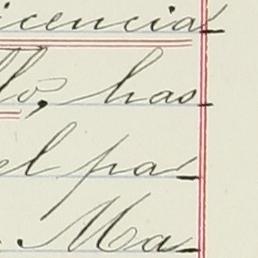 icencia
llo, has_
el pa_
. Ma_